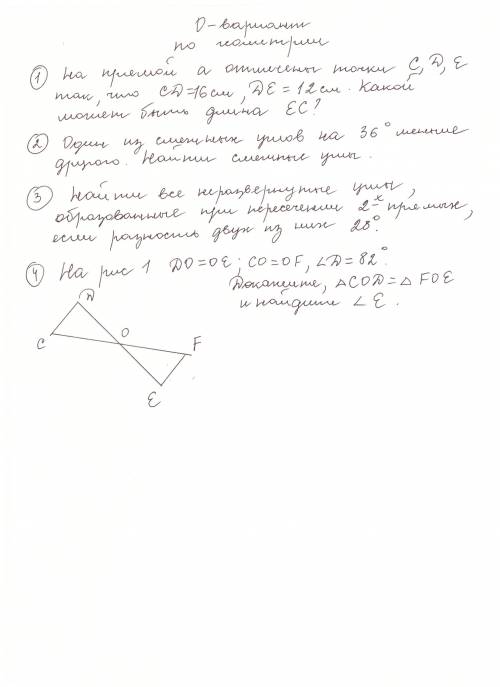 D-вариант
по геометрии
① На прямой а отмечены точки C, D, E
так, что CD=16см, DE=12см. Какой
может быть длина EC?
② Один из смежных углов на 36° меньше
другого. Найти смежные углы.
③ Найти все неразвернутые углы,
образованные при пересечении 2х прямых,
если разность двух из них 28°.
④ На рис 1 DO=OE; CO=OF, ∠D=82°
Докажите, △COD=△FOE
и найдите ∠E.
D
O
C
F
E